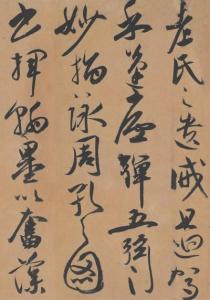 老氏之遺誡且迴駕
乎蓬廬彈五弦之
妙指詠周孔之圖
書揮翰墨以奮藻